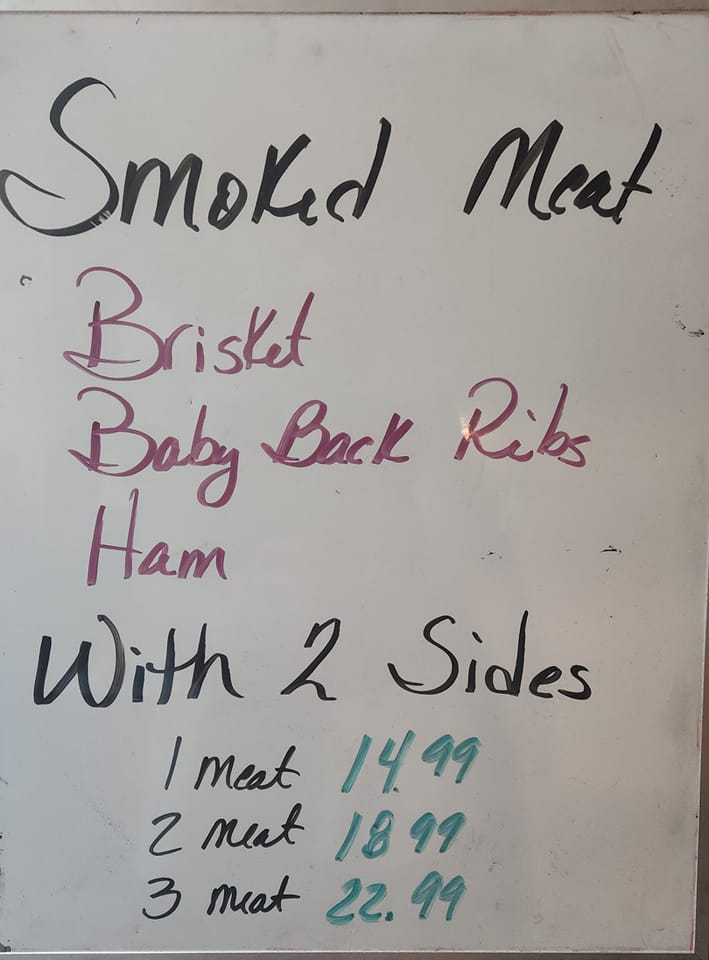 Smoked Meat
Brisket
Baby Back Ribs
Ham
With 2 Sides
1 meat 14.99
2 meat 18 99
3 meat 22.99